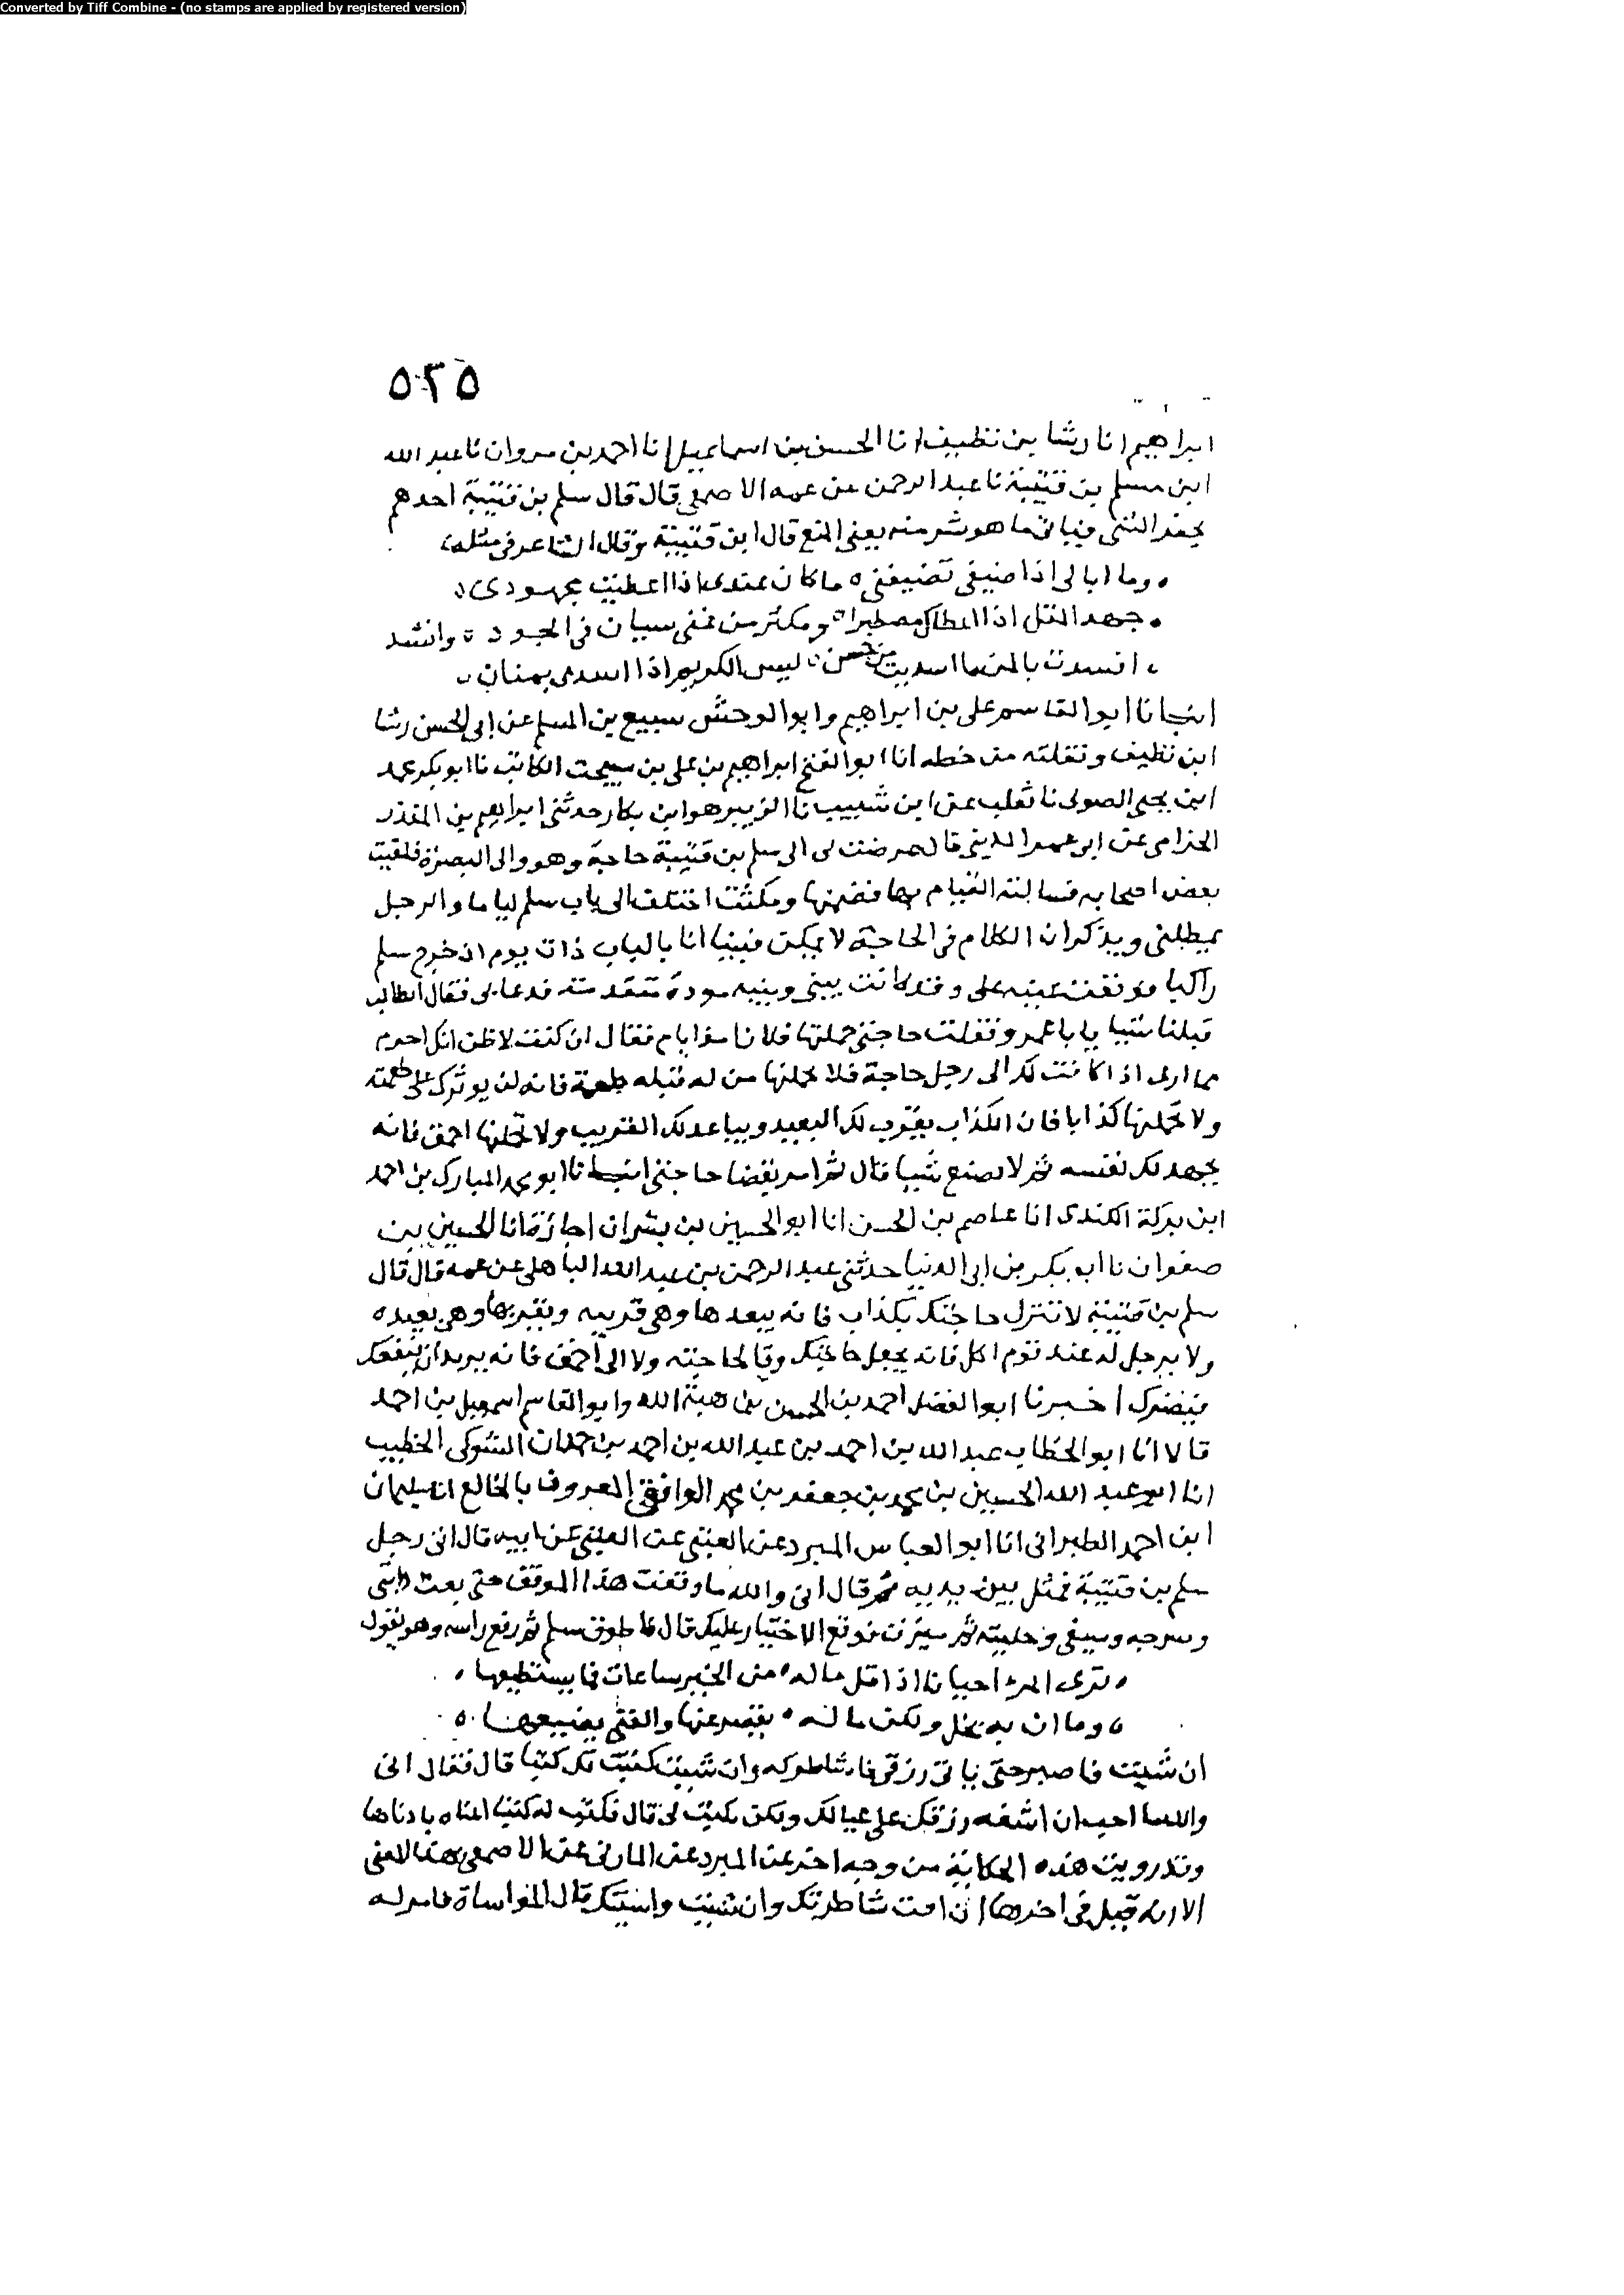 Converted by Tiff Combine - (no stamps are applied by registered version)
٥٢٥
ابراهيم انا رشا بن نظيف انا الحسن بن اسماعيل انا احمد بن مروان نا عبد الله
ابن مسلم بن قتيبة نا عبد الرحمن عن عمه الاصمعي قال قال سلم بن قتيبة احدهم
يحقر الشى فياتى ما هو شر منه يعنى المنع قال ابن قتيبة وقال الشاعر فى مثله
وما ابالى اذا ضيفى تضيفنى ه ما كان عندى اذا اعطيت مجهودى ه
جهد المقل اذا اعطاك مصطبرا ه ومكثر من غنى سيان فى الجود ه وانشد
افسدت بالمن ما اسديت من حسن ه ليس الكريم اذا اسدى بمنان
انبانا ابو القاسم على بن ابراهيم وابو الوحش سبيع بن المسلم عن ابى الحسن رشا
ابن نظيف ونقلته من خطه انا ابو الفتح ابراهيم بن على بن سيبخت الكاتب نا ابو بكر محمد
ابن يحيى الصولى نا ثعلب عن ابن شبيب نا الزبير هو ابن بكار حدثنى ابراهيم بن المنذر
الحزامى عن ابى عمرو المدينى قال عرضت لى الى سلم بن قتيبة حاجة وهو والى البصرة فلقيت
بعض اصحابه فسالته القيام بها فضمنها ومكثت اختلف الى باب سلم اياما والرجل
يمطلنى ويذكر ان الكلام فى الحاجة لا يمكن فبينا انا بالباب ذات يوم اذ خرج سلم
راكبا فوقعت عينه على وقد كانت بينى وبينه مودة متقدمة فدعا بى فقال اتطالب
قبلنا شيا يا با عمرو فقلت حاجتى حملتها فلانا مذ ايام فقال ان كنت لاظن انك احزم
مما ارى اذا كانت لك الى رجل حاجة فلا تحملنها من له قبله طعمة فانه لن يوثرك على طعمته
ولا تحملنها كذابا فان الكذاب يقرب لك البعيد ويباعد لك القريب ولا تحملنها احمق فانه
يجهد لك نفسه ثم لا يصنع شيا قال ثم امر بقضا حاجتى انبانا ابو محمد المبارك بن احمد
ابن بركة الكندى انا عاصم بن الحسن انا ابو الحسين بن بشران اجازة انا الحسين بن
صفوان نا ابو بكر بن ابى الدنيا حدثنى عبد الرحمن بن عبد الله الباهلى عن عمه قال قال
سلم بن قتيبة لا تنزل حاجتك بكذاب فانه يبعدها وهى قريبه ويقربها وهى بعيده
ولا برجل له عند قوم اكل فانه يجعل حاجتك وقا لحاجته ولا الى احمق فانه يريد ان ينفعك
فيضرك اخبرنا ابو الفضل احمد بن الحسن بن هبة الله وابو القاسم اسمعيل بن احمد
قالا انا ابو الخطاب عبد الله بن احمد بن عبد الله بن احمد بن حمدان الشوكى الخطيب
انا ابو عبد الله الحسين بن محمد بن جعفر بن محمد الرافقى المعروف بالخالع انا سليمان
ابن احمد الطبرانى انا ابو العباس المبرد عن العتبى عن ابيه قال اتى رجل
سلم بن قتيبة فمثل بين يديه ثم قال انى والله ما وقفت هذا الموقف حتى بعت دابتى
وسرجه وسيفى وحليته ثم سيرت فوقع الاختيار عليك قال فاطرق سلم ثم رفع راسه وهو يقول
ترى المرء احيانا اذا قل ماله ه من الخير ساعات فما يستطيعها
وما ان به بخل ولكن ماله ه يقصر عنها والفتى يضيعها ه
ان شيت فاصبر حتى ياتى رزقى فاشاطركه وان شيت كتبت لك كتبا قال فقال انى
والله ما احب ان اشغه رزقك على عيالك ولكن تكتب لى قال فكتب له كتبا اغناه بادناها
وقد رويت هذه الحكاية من وجه اخر عن المبرد عن المازنى عن الاصمعى بهذا المعنى
الا انه قيل فى اخرها ان اقمت شاطرتك وان شيت واسيتك قال المواساة فامر له